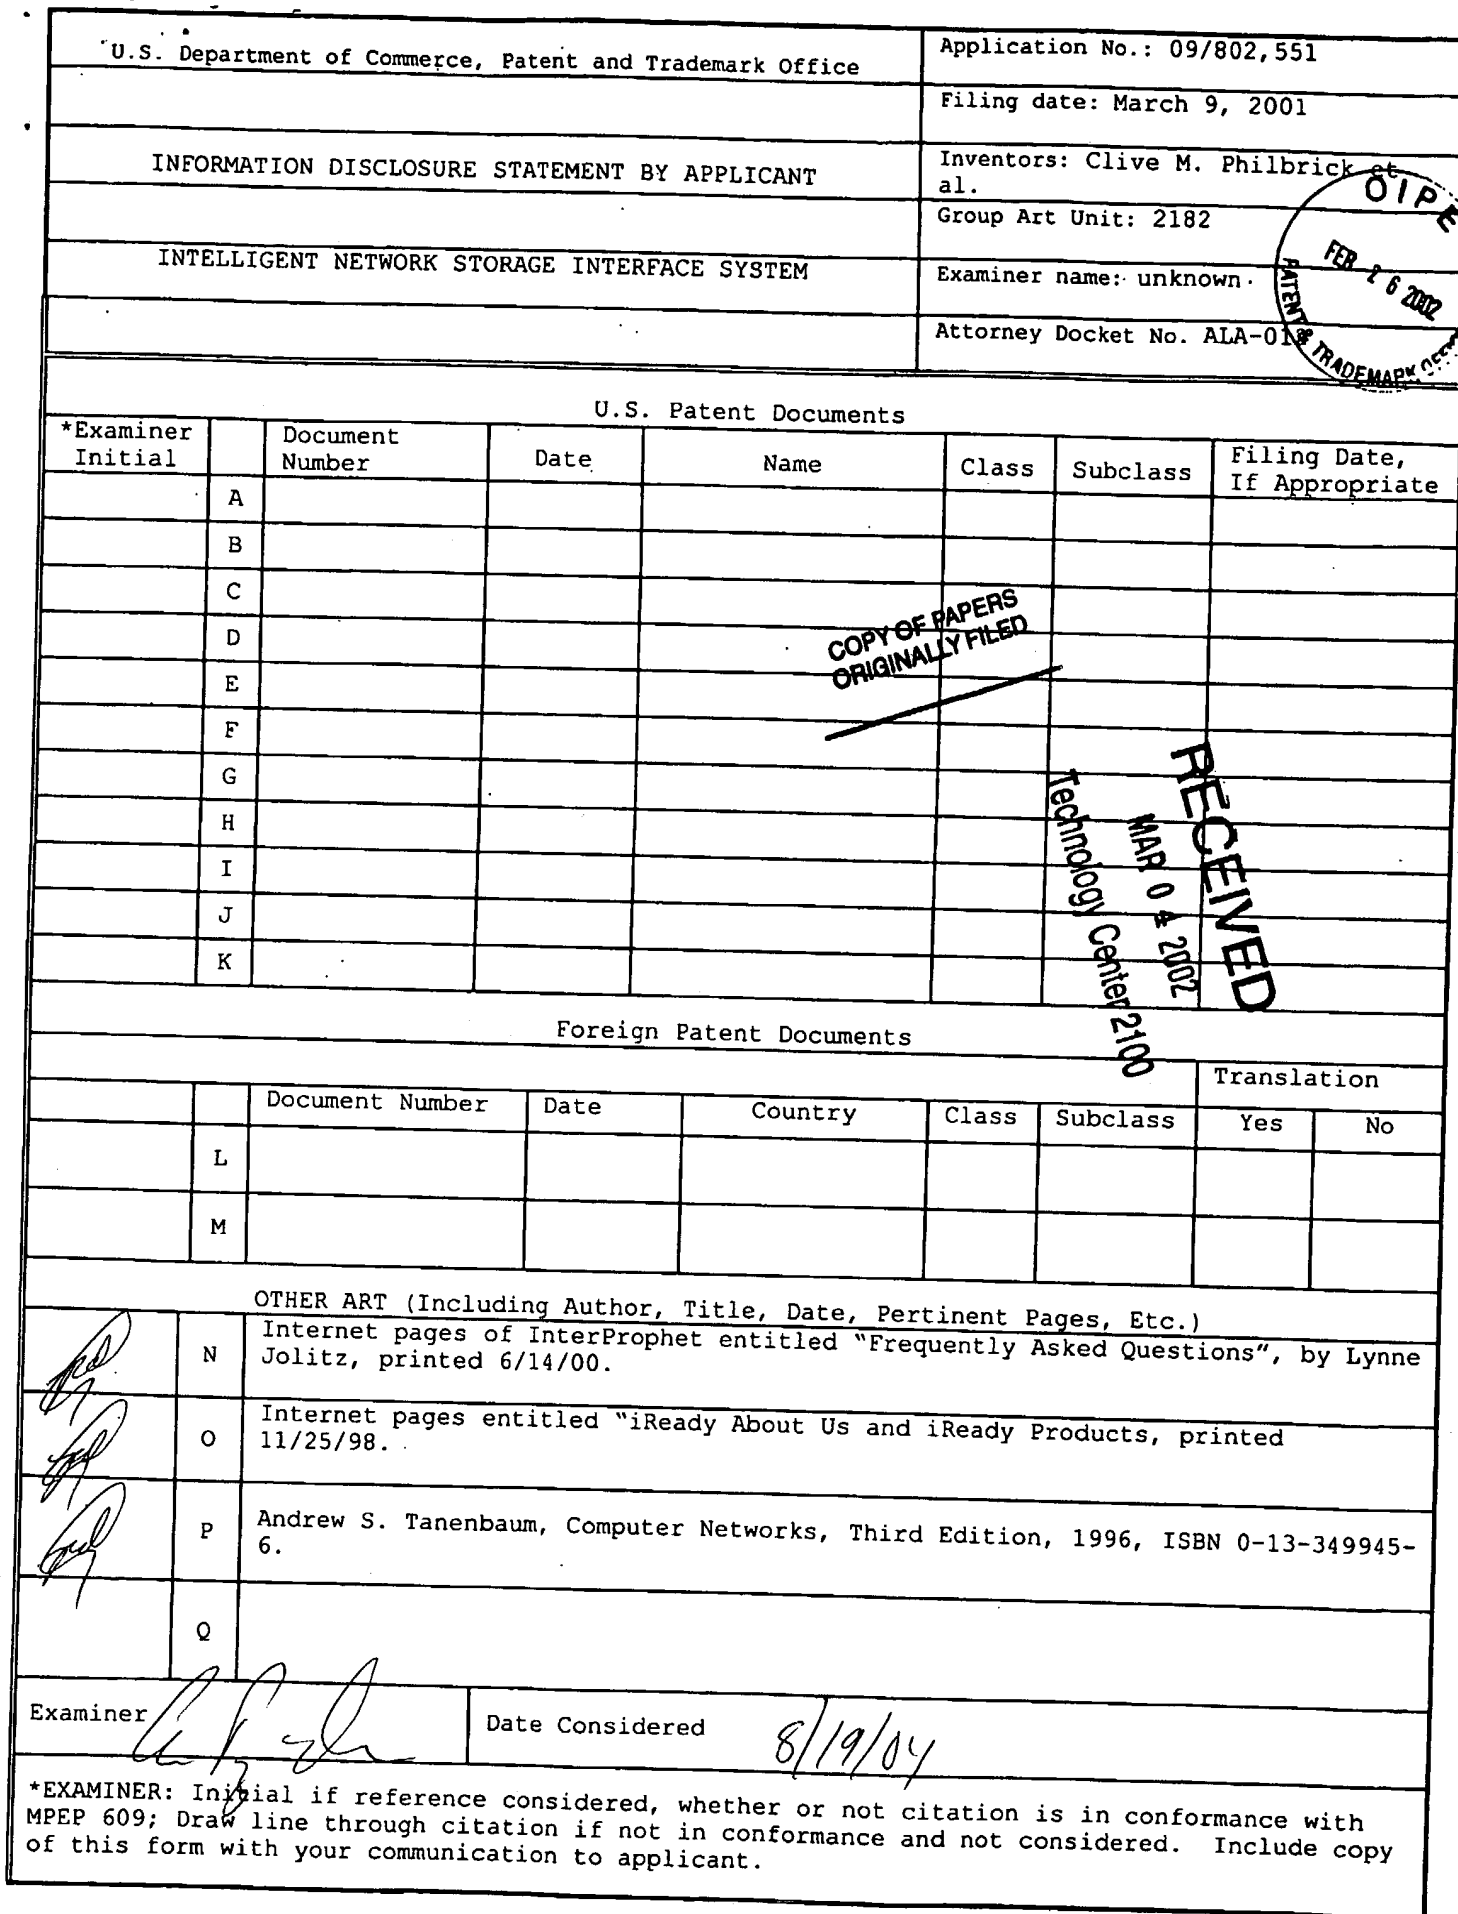 U.S. Department of Commerce, Patent and Trademark Office
Application No.: 09/802,551
Filing date: March 9, 2001
INFORMATION DISCLOSURE STATEMENT BY APPLICANT
Inventors: Clive M. Philbrick et
al.
Group Art Unit: 2182
INTELLIGENT NETWORK STORAGE INTERFACE SYSTEM
Examiner name: unknown
Attorney Docket No. ALA-01
OIPE
FEB 26 2002
PATENT & TRADEMARK OFFICE
U.S. Patent Documents
*Examiner
Initial
Document
Number
Date
Name
Class
Subclass
Filing Date,
If Appropriate
A
B
C
D
E
F
G
H
I
J
K
COPY OF PAPERS
ORIGINALLY FILED
RECEIVED
MAR 04 2002
Technology Center 2100
Foreign Patent Documents
Translation
Document Number
Date
Country
Class
Subclass
Yes
No
L
M
OTHER ART (Including Author, Title, Date, Pertinent Pages, Etc.)
N
Internet pages of InterProphet entitled "Frequently Asked Questions", by Lynne
Jolitz, printed 6/14/00.
O
Internet pages entitled "iReady About Us and iReady Products, printed
11/25/98.
P
Andrew S. Tanenbaum, Computer Networks, Third Edition, 1996, ISBN 0-13-349945-
6.
Q
Examiner
Date Considered
8/19/04
*EXAMINER: Initial if reference considered, whether or not citation is in conformance with
MPEP 609; Draw line through citation if not in conformance and not considered. Include copy
of this form with your communication to applicant.